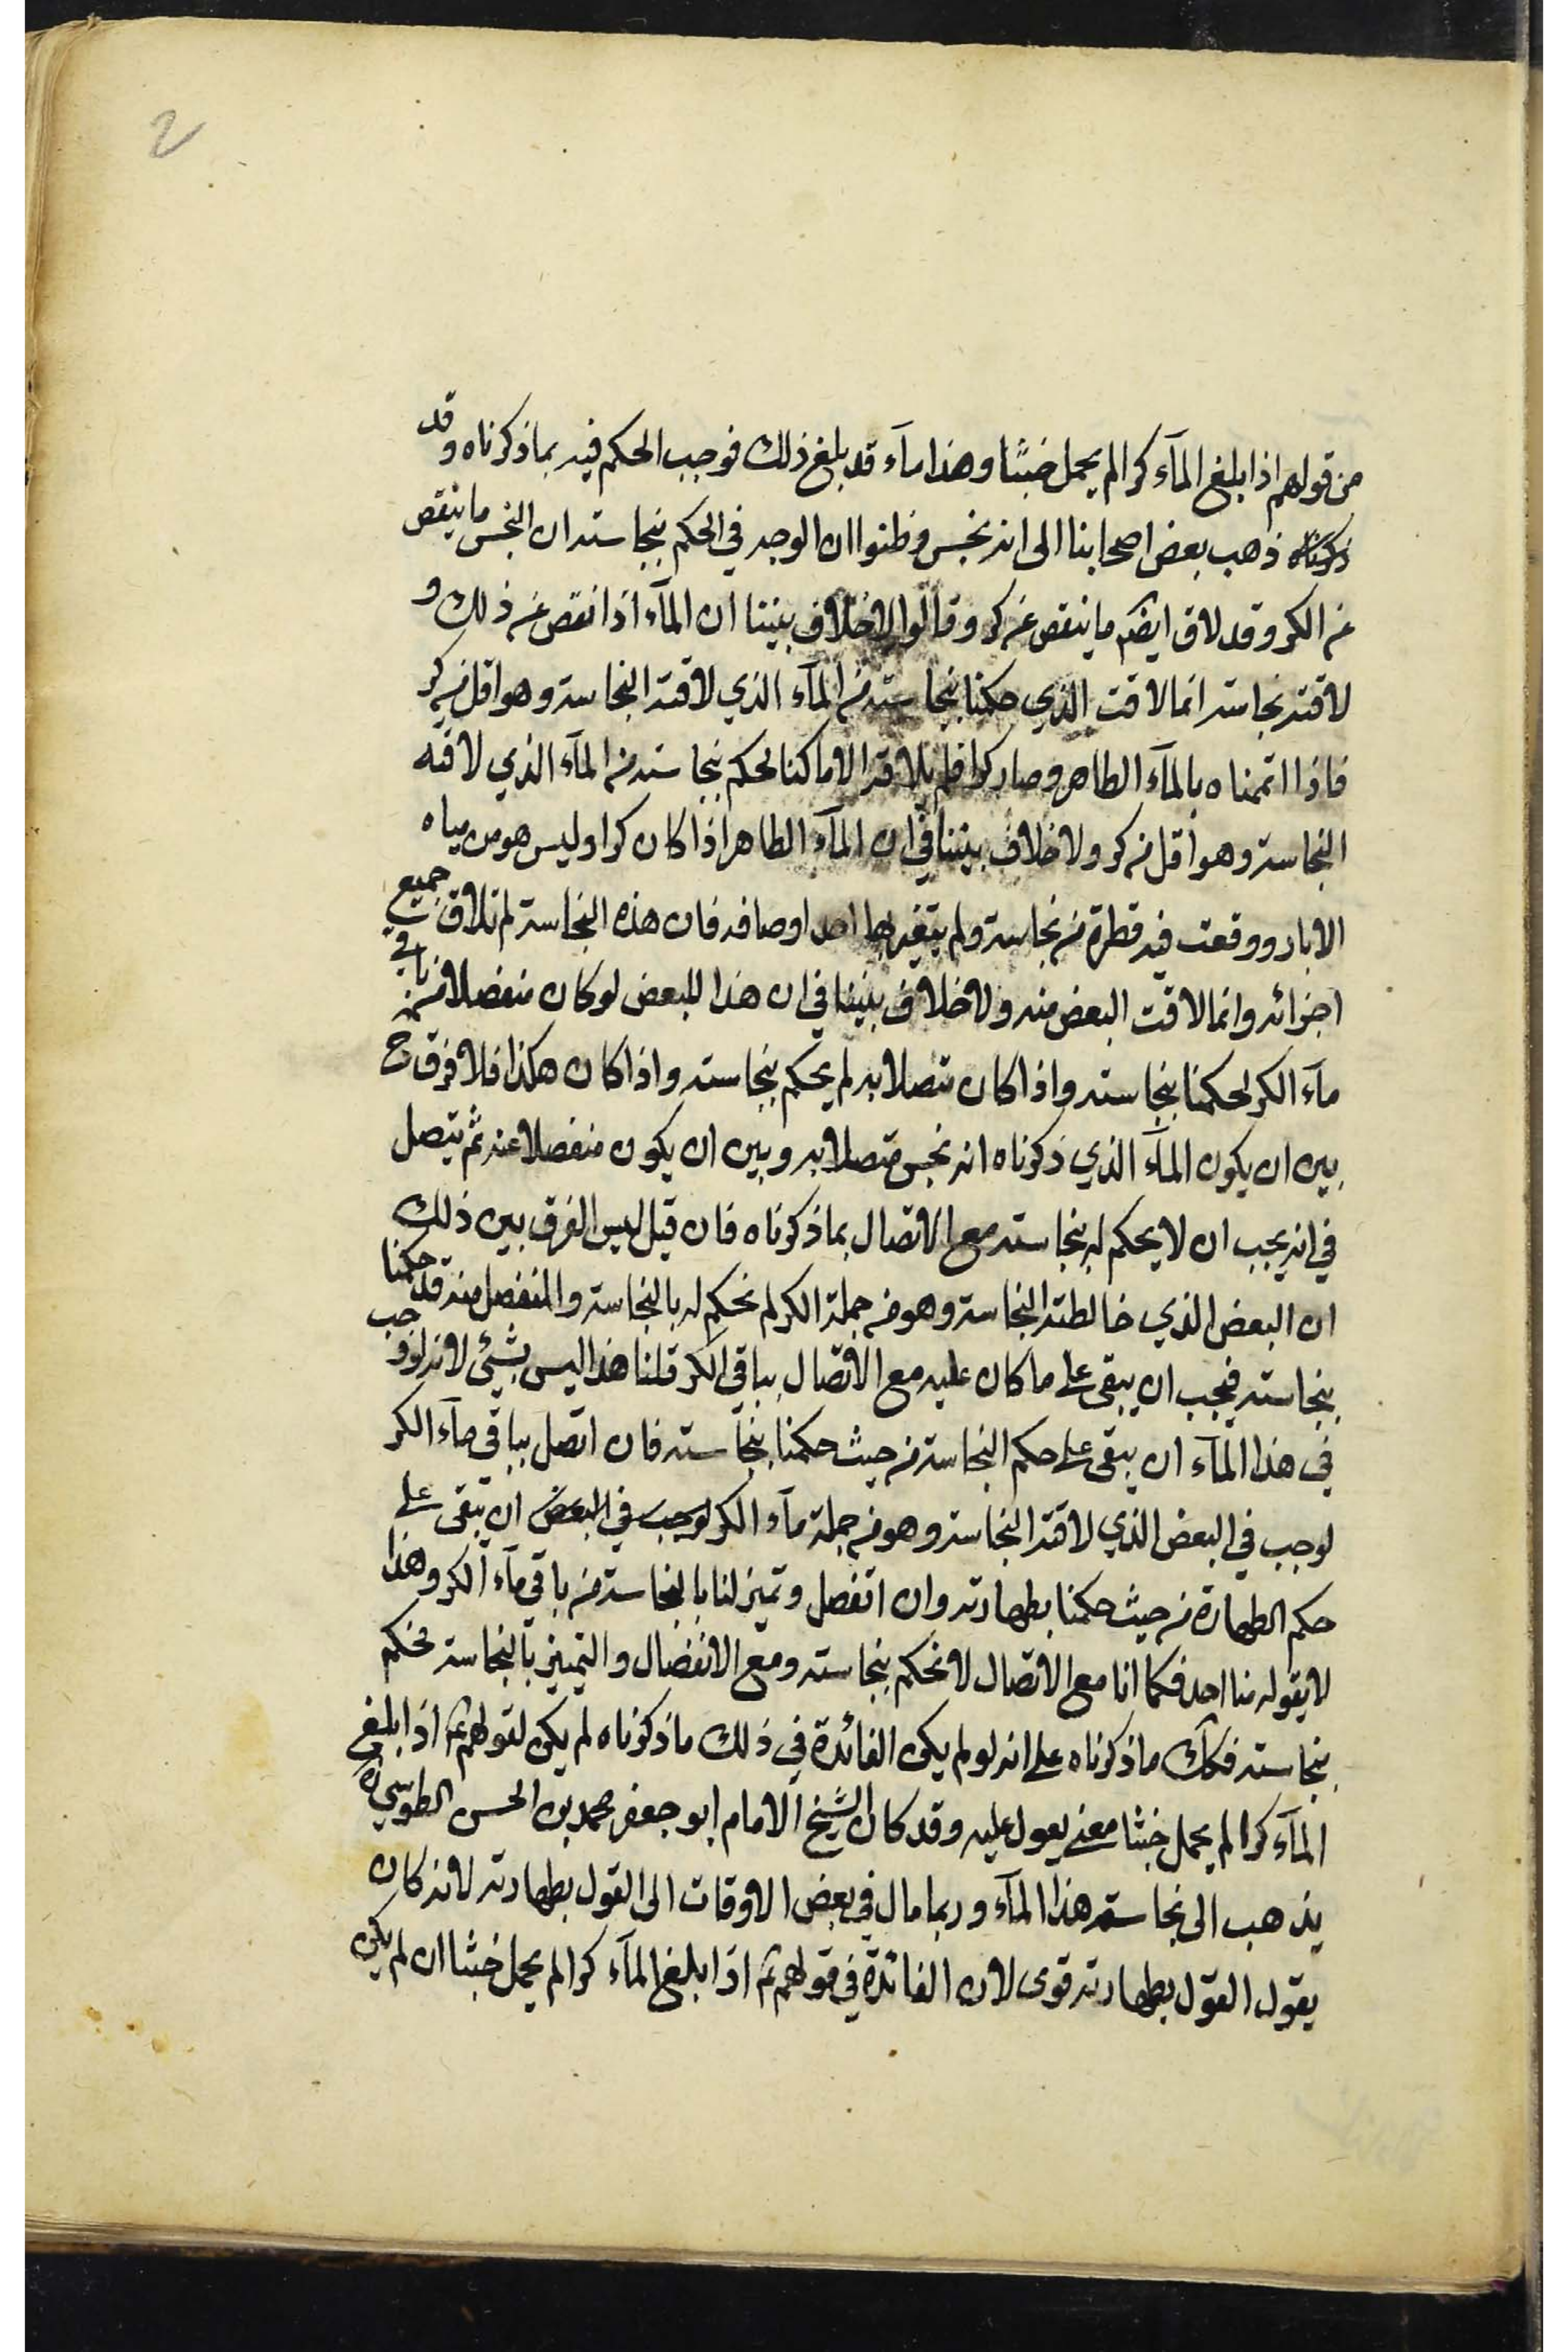 2
من قولهم اذا بلغ المآء كرا لم يحمل خبثا وهذا مآء قد بلغ ذلك فوجب الحكم فيه بما ذكرناه وقد
ذكرناه ذهب بعض اصحابنا الى انه نجس وظنوا ان الوجه في الحكم بنجاسته ان النجس ما ينقص
عن الكر وقد لاق ايضم ما ينقص عن كر وقالوا لا خلاف بيننا ان المآء اذا نقص عن ذلك و
لاقته نجاسته انما لاقت الذي حكمنا بنجاسته من المآء الذي لاقته النجاسة وهو اقل من كر
فاذا اتممناه بالمآء الطاهر وصار كرا فلم يلاقه الا ما كنا نحكم بنجاسته من المآء الذي لاقته
النجاسة وهو اقل من كر ولا خلاف بيننا في ان المآء الطاهر اذا كان كرا وليس هو من مياه
الابار ووقعت فيه قطرة من نجاسة ولم يتغير بها احد اوصافه فان هذه النجاسة لم تلاق جميع
اجزائه وانما لاقت البعض منه ولا خلاف بيننا في ان هذا البعض لو كان منفصلا من باقي
مآء الكر لحكمنا بنجاسته واذا كان متصلا به لم يحكم بنجاسته واذا كان هكذا فلا فرق ح
بين ان يكون المآء الذي ذكرناه انه نجس متصلا به وبين ان يكون منفصلا عنه ثم يتصل
في انه يجب ان لا يحكم له بنجاسته مع الاتصال بما ذكرناه فان قيل ليس الفرق بين ذلك
ان البعض الذي خالطته النجاسة وهو من جملة الكر لم نحكم له بالنجاسة والمنفصل منه قد حكمنا
بنجاسته فيجب ان يبقى على ما كان عليه مع الاتصال بباقي الكر قلنا هذا ليس بشئ لانه لو وجب
في هذا المآء ان يبقى على حكم النجاسة من حيث حكمنا بنجاسته فان اتصل بباقي مآء الكر
لوجب في البعض الذي لاقته النجاسة وهو من جملة مآء الكر لوجب في البعض ان يبقى على
حكم الطهارة من حيث حكمنا بطهارته وان انفصل وتميز لنا بالنجاسة من باقي مآء الكر وهذا
لا يقوله منا احد فكما انا مع الاتصال لا نحكم بنجاسته ومع الانفصال والتميز بالنجاسة نحكم
بنجاسته فكك ما ذكرناه على انه لو لم يكن الفائدة في ذلك ما ذكرناه لم يكن لقولهم ع اذا بلغ
المآء كرا لم يحمل خبثا معنى يعول عليه وقد كان الشيخ الامام ابو جعفر محمد بن الحسن الطوسي ره
يذهب الى نجاسته هذا المآء وربما مال في بعض الاوقات الى القول بطهارته لانه كان
يقول القول بطهارته قوى لان الفائدة في قولهم ع اذا بلغ المآء كرا لم يحمل خبثا ان لم يكن